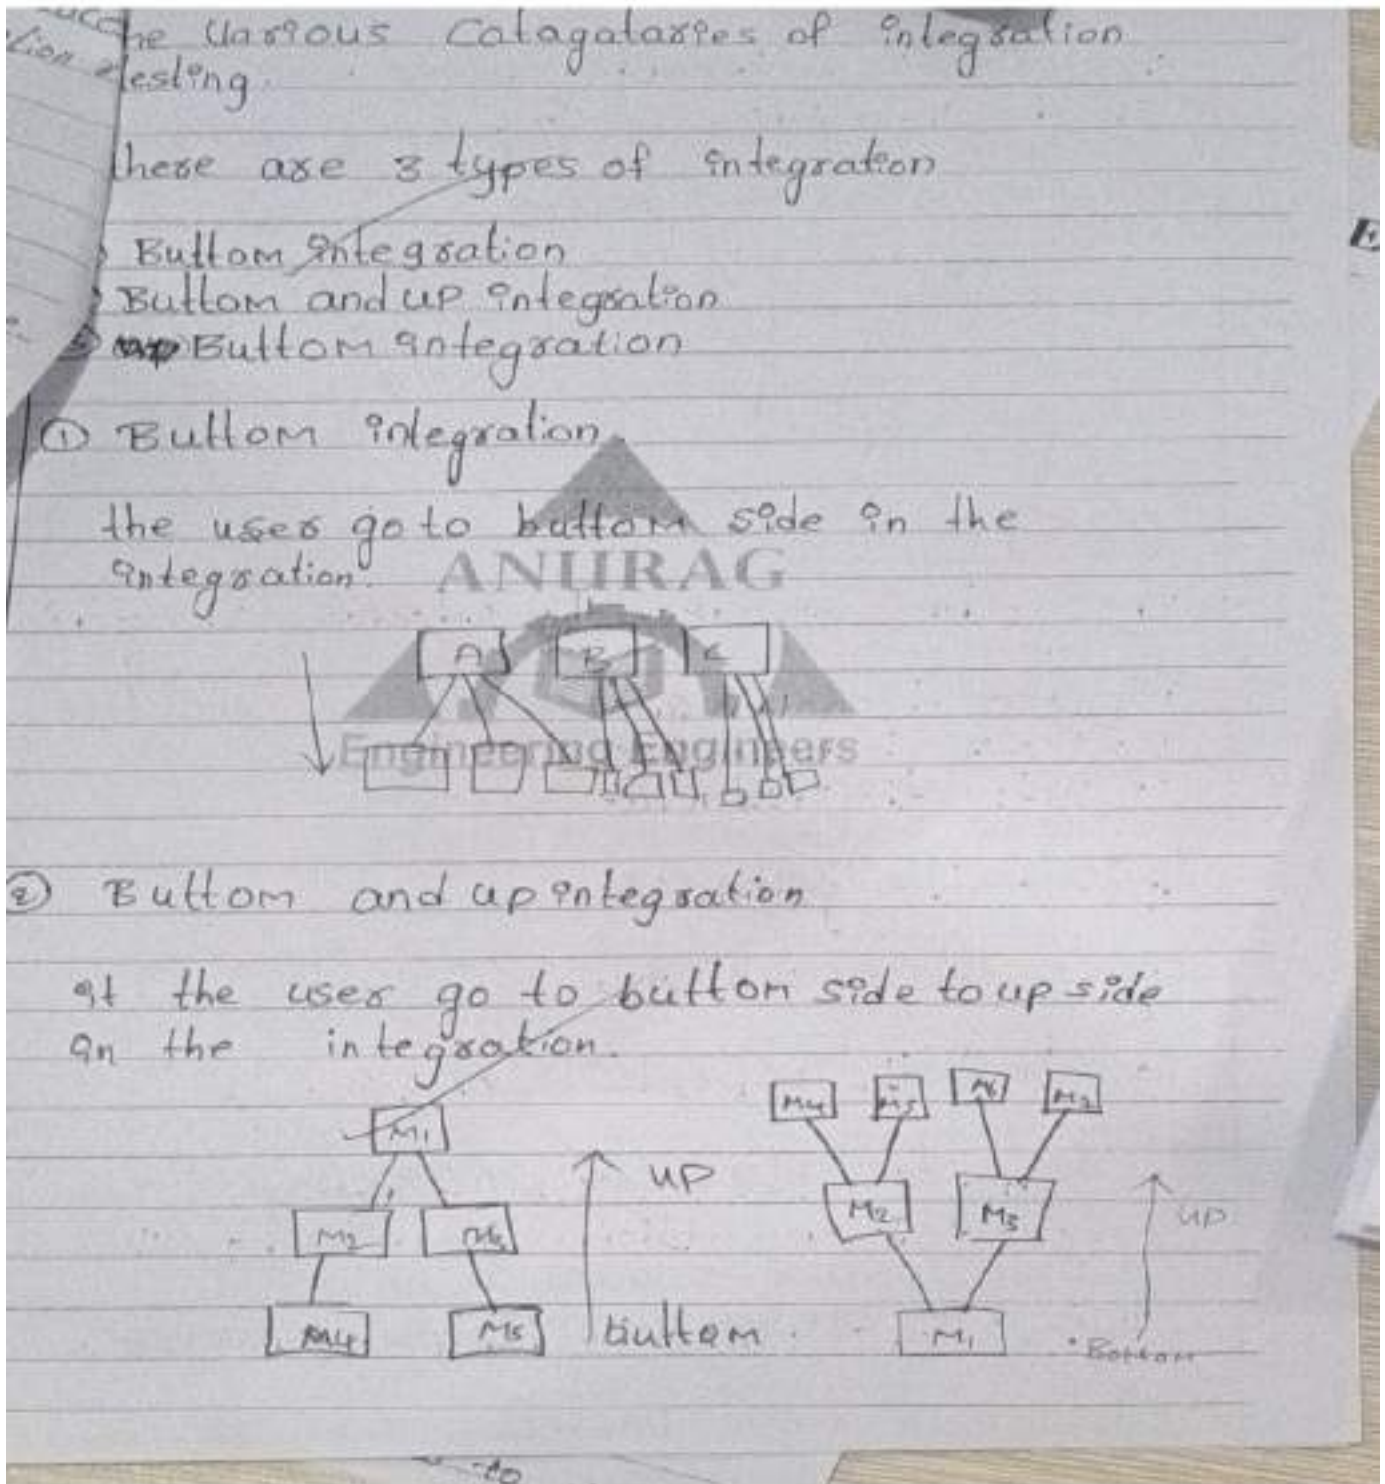 he various Catagataries of integration
testing.
there are 3 types of integration
Buttom integration
Buttom and up integration
Buttom integration
① Buttom integration.
the user go to buttom side in the
integration.
ANURAG
A B C
Engineering Engineers
② Buttom and up integration
the user go to buttom side to up side
in the integration.
M4 M5 M6
M1
up
M2 M3 up
M2
M4 M5 buttom M1 Bottom